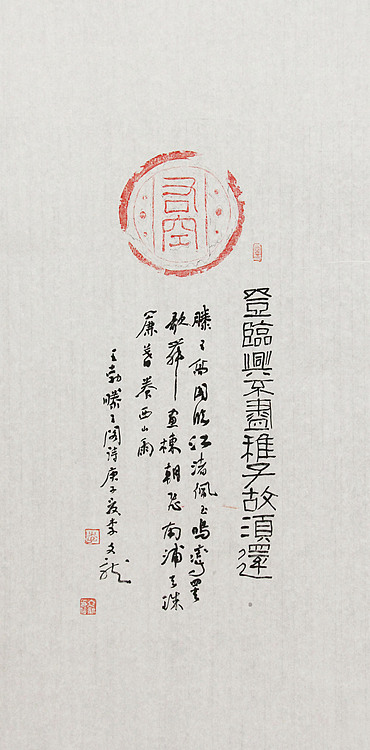 右空
登臨興不盡稚子故須還
滕王高閣臨江渚佩玉鳴鸞罷
歌舞畫棟朝飛南浦雲珠
簾暮卷西山雨
王勃滕王閣詩庚子夏李文龍